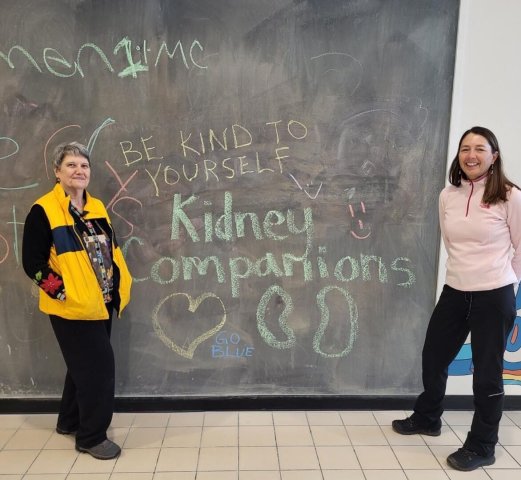 BE KIND TO
YOURSELF
Kidney
Companions
GO
BLUE